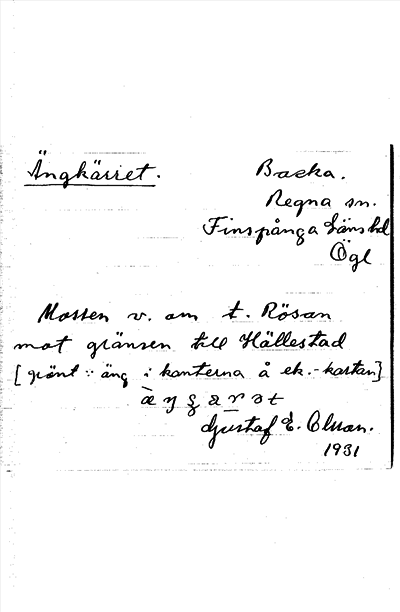 Ängkärret.
Backa.
Regna sn.
Finspånga läns hd
Ögl
Mossen v. om t. Rösan
mot gränsen till Hällestad
[grönt : äng i kanterna å ek.-kartan]
Gustaf E. Olsson.
1931